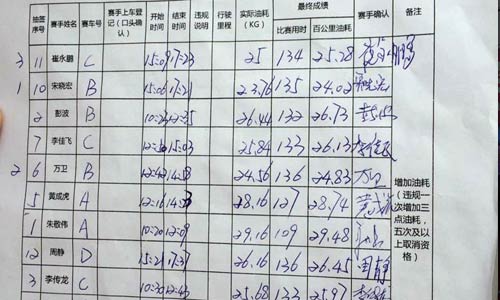 抽签序号 选手姓名 赛车号 赛手上车登记（口头确认） 开始时间 结束时间 违规说明 行驶里程 实际油耗（KG） 最终成绩 比赛用时 百公里油耗 赛手确认 备注
3 11 崔永鹏 C 15:09 17:23 25 134 25.28
1 10 宋晓宏 B 15:06 17:21 23.76 135 24.02
2 彭波 B 26.44 132 26.73
7 李佳飞 C 15:03 25.84 133 26.13 李佳飞
2 6 万卫 B 12:42 14:58 24.56 136 24.83 万卫
5 黄成虎 A 12:16 28.16 127 28.74
1 朱敬伟 A 10:20 12:09 29.16 109 29.48
12 周静 D 15:21 17:37 26.16 136 26.45 周静
3 李传龙 C 10:30 25.68 133 25.97
增加油耗（违规一次增加三点油耗，五次及以上取消资格）